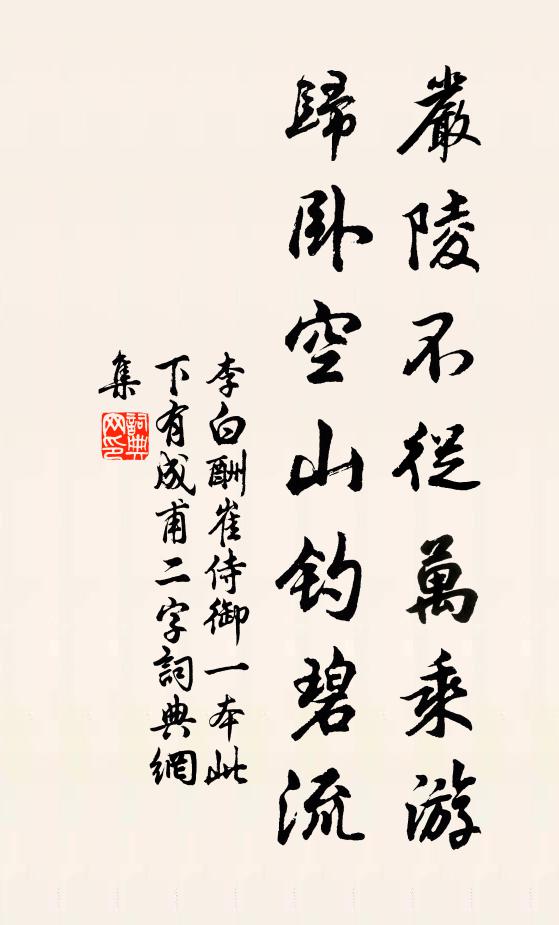 嚴陵不從萬乘游
歸卧空山釣碧流
李白酬崔侍御一本此
下有成甫二字詞典網
集
詞典
网印